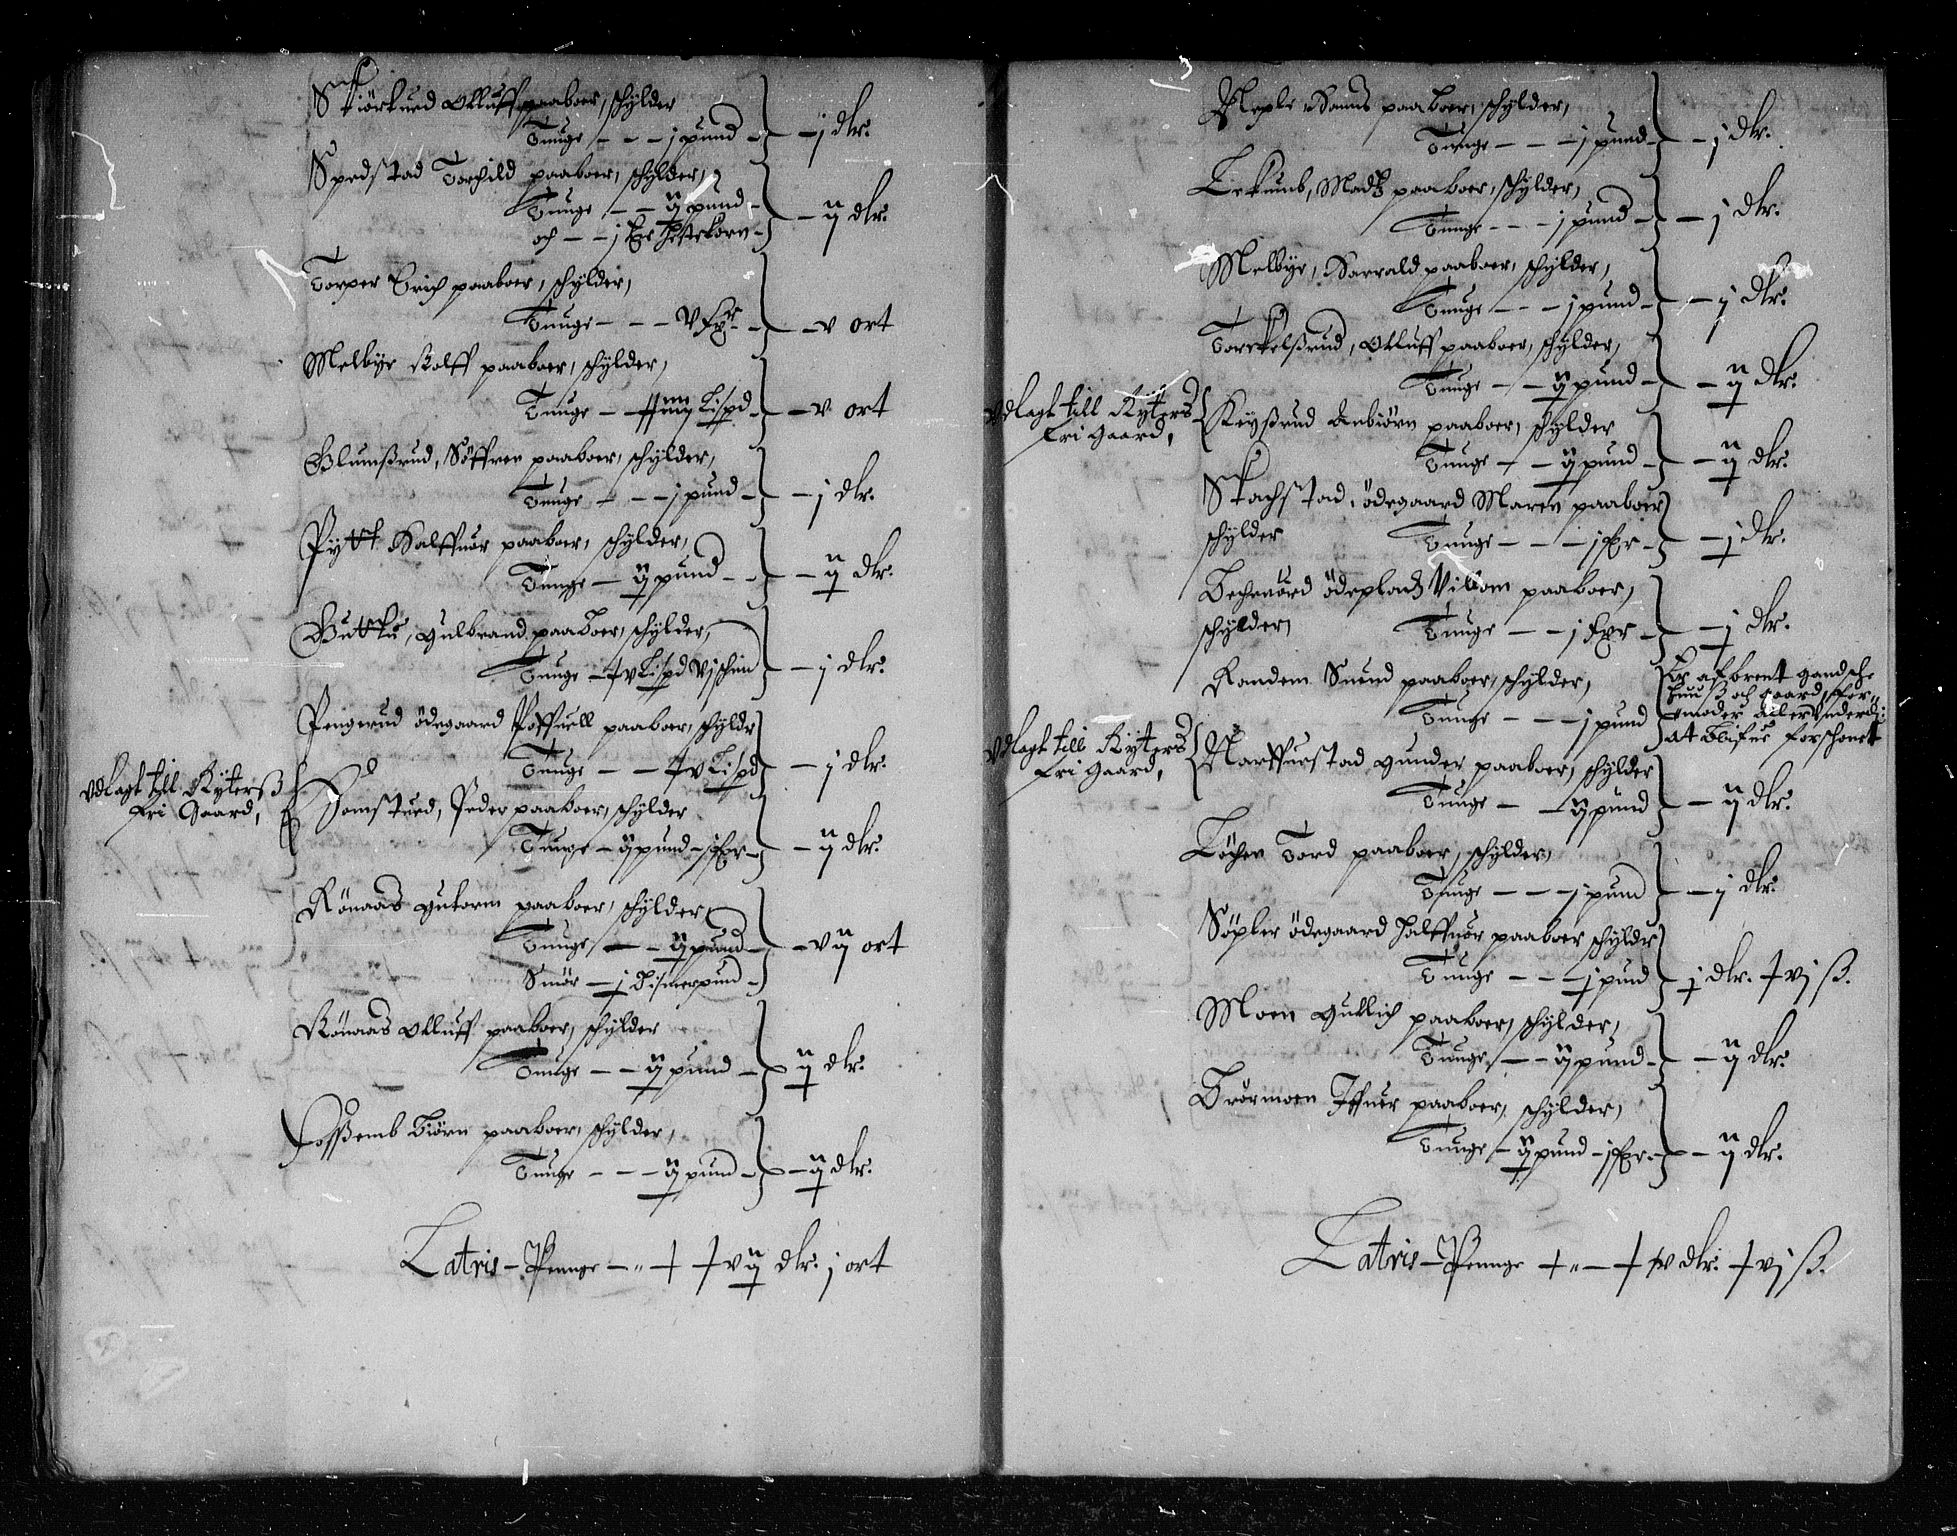 Skiörkued Olluff paaboer, schylder
Tunge - - - j pund - - j dlr.
Spedstad Torchild paaboer, schylder,
Tunge - - ij pund
och - - j Fr Hestekorn - - ij dlr.
Torper Erich paaboer, schylder,
Tunge - - - V Fr - - v ort
Melbye Rolff paaboer, schylder,
Tunge - Lispd - - v ort
Blumßrud, Söffren paaboer, schylder,
Tunge - - - j pund - - j dlr.
Pytt Halffuor paaboer, schylder,
Tunge - ij pund - - - ij dlr.
Gulbrand paaboer, schylder,
Tunge - xv Lispd vj schin - j dlr.
Pengerud ödegaard Poffuell paaboer, schylder
Tunge - - xv Lispd - j dlr.
Vdlagt till Ryterß
fri Gaard,
Homstued, Peder paaboer, schylder
Tunge - ij pund - j Fr - - ij dlr.
Rönaas gutorm paaboer, schylder,
Tunge - - ij pund
Smör - j Bismerpund - - vij ort
Rönaas Olluff paaboer, schylder
Tunge - - ij pund - ij dlr.
Foßemb Biörn paaboer, schylder,
Tunge - - - ij pund - - ij dlr.
Latris - Penge - " - xxvij dlr. j ort
Neple Hanns paaboer, schylder,
Tunge - - - j pund - - j dlr.
Lekumb, Madtz paaboer, schylder,
Tunge - - - j pund - - j dlr.
Melbye, Harrald paaboer, schylder,
Tunge - - - j pund - - j dlr.
Torkelßrud, Olluff paaboer, schylder,
Tunge - - ij pund - - ij dlr.
Vdlagt till Ryters
fri Gaard,
Keyßrud Anbiörn paaboer, schylder
Tunge - - ij pund - - ij dlr.
Skachstad, ödegaard Maren paaboer
schylder Tunge - - - j Fr - - j dlr.
ödeplads Villom paaboer,
schylder, Tunge - - j Fr - - j dlr.
Randem Suend paaboer, schylder,
Tunge - - - j pund
Er afbrent gandsche
huuß och gaard, for-
moder allervnderd:
at blifue forschonet
Vdlagt till Ryters
fri Gaard,
Narffuestad gunder paaboer, schylder
Tunge - - ij pund - ij dlr.
Löchen Tord paaboer, schylder,
Tunge - - - j pund - - j dlr.
Söpler ödegaard Halffuor paaboer schylder
Tunge - - - j pund j dlr. xvj ß.
Moen gullich paaboer, schylder,
Tunge - - ij pund - - ij dlr.
Brörmoen Iffuer paaboer, schylder,
Tunge - ij pund - j Fr - - ij dlr.
Latris - Penge - " - xxv dlr. xvj ß.